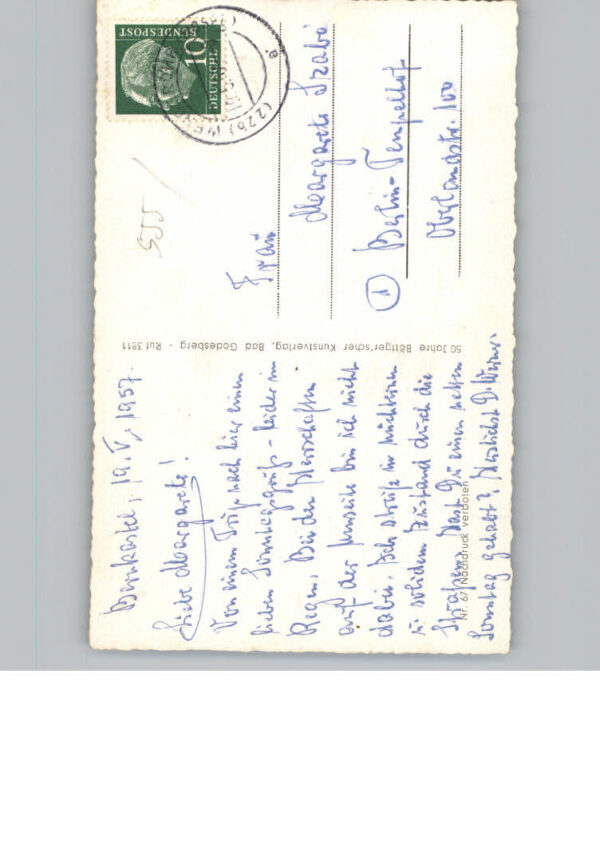 Bernkastel, 19.V.1957.
Liebe Margarete!
Von einem Trip nach hier einen
lieben Sonntagsgruß - leider im
Regen. Bei den
auf der bin ich nicht
dabei. Ich streife im nüchternen
u. solidem Zustand durch die
Straßen. Hast Du einen netten
Sonntag gehabt? Herzlichst D. Werner.
Nr. 67 Nachdruck verboten
50 Jahre Böttger'scher Kunstverlag, Bad Godesberg - Ruf 3811
555
DEUTSCHE
BUNDESPOST
10
(22b)
Frau
Margarete Szabó
(1) Berlin-Tempelhof
Oberlandstr. 100